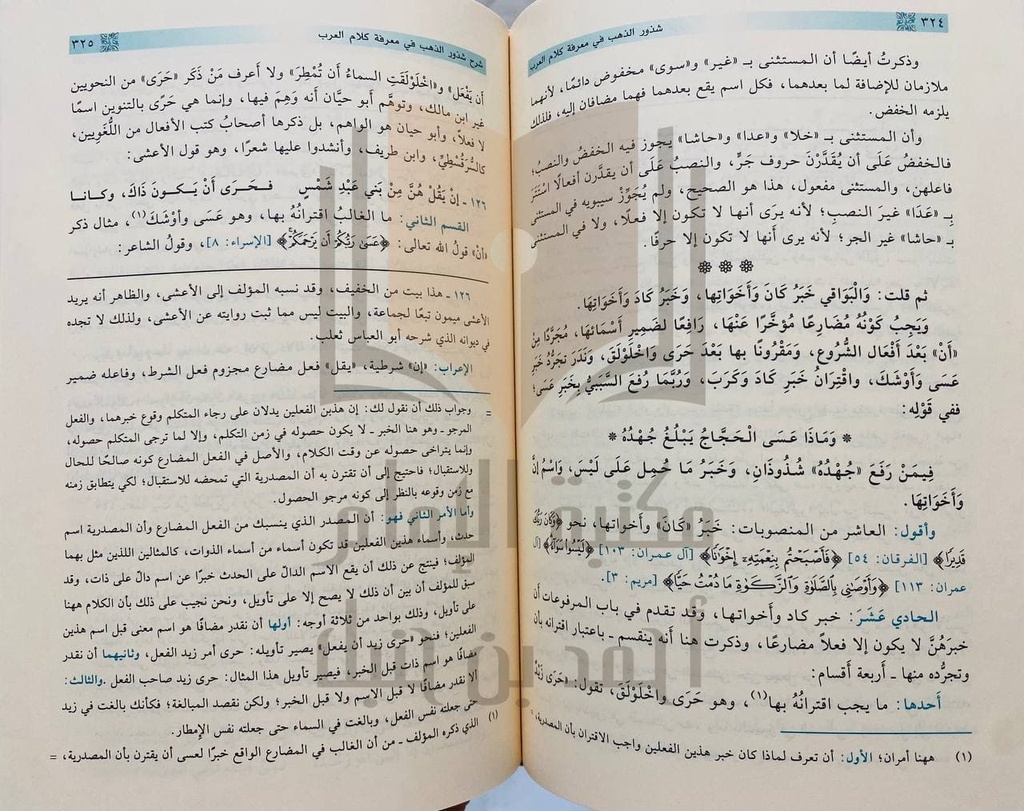 ٣٢٤
شذور الذهب في معرفة كلام العرب
وذكرتُ أيضًا أن المستثنى بـ «غير» و«سوى» مخفوض دائمًا، لأنهما
ملازمان للإضافة لما بعدهما، فكل اسم يقع بعدهما فهما مضافان إليه، فلذلك
يلزمه الخفض.
وأن المستثنى بـ «خلا» و«عدا» و«حاشا» يجوز فيه الخفض والنصب؛
فالخفضُ عَلَى أن يُقَدَّرْنَ حروف جَرٍّ، والنصبُ عَلَى أن يقدَّرن أفعالًا اسْتَتَرَ
فاعلهن، والمستثنى مفعول، هذا هو الصحيح، ولم يُجَوِّزْ سيبويه في المستثنى
بـ «عَدَا» غيرَ النصب؛ لأنه يرى أنها لا تكون إلا فعلًا، ولا في المستثنى
بـ «حاشا» غير الجر؛ لأنه يرى أنها لا تكون إلا حرفًا.
ثم قلت: وَالْبَوَاقي خَبَرُ كَانَ وَأَخَوَاتِها، وَخَبَرُ كَادَ وَأَخَوَاتِهَا.
وَيَجِبُ كَوْنُهُ مُضَارِعًا مُؤَخَّرًا عَنْهَا، رَافِعًا لضَميرِ أَسْمَائِهَا، مُجَرَّدًا مِنْ
«أَنْ» بَعْدَ أَفْعَال الشُّرُوعِ، وَمَقْرُونًا بها بَعْدَ حَرَى وَاخْلَوْلَقَ، وَنَدَرَ تَجَرُّدُ خَبَرِ
عَسَى وَأَوْشَكَ، واقْتِرَانُ خَبَرِ كَادَ وَكَرَبَ، وَرُبَّمَا رُفِعَ السَّبَبيُّ بِخَبَرِ عَسَى؛
ففي قَوْلِهِ:
* وَمَاذَا عَسَى الْحَجَّاجُ يَبْلُغُ جُهْدُهُ *
فِيمَنْ رَفَعَ «جُهْدُهُ» شُذُوذَانِ، وَخَبَرُ مَا حُمِلَ عَلَى لَيْسَ، وَاسْمُ إِنَّ
وَأَخَوَاتِهَا.
وأقول: العاشر من المنصوبات: خَبَرُ «كَانَ» وأخواتها، نحو ﴿وَكَانَ رَبُّكَ
قَدِيرًا﴾ [الفرقان: ٥٤] ﴿فَأَصْبَحْتُم بِنِعْمَتِهِۦٓ إِخْوَٰنًا﴾ [آل عمران: ١٠٣] ﴿لَيْسُوا۟ سَوَآءً﴾ [آل
عمران: ١١٣] ﴿وَأَوْصَٰنِى بِٱلصَّلَوٰةِ وَٱلزَّكَوٰةِ مَا دُمْتُ حَيًّا﴾ [مريم: ٣].
الحادي عَشَرَ: خبر كاد وأخواتها، وقد تقدم في باب المرفوعات أن
خبرَهُنَّ لا يكون إلا فعلًا مضارعًا، وذكرت هنا أنه ينقسم ـ باعتبار اقترانه بأن
وتجرُّده منها ـ أربعة أقسام:
أحدها: ما يجب اقترانُهُ بها(١)، وهو حَرَى واخْلَوْلَقَ، تقول: «حَرَى زَيْدٌ
(١) ههنا أمران؛ الأول: أن تعرف لماذا كان خبر هذين الفعلين واجب الاقتران بأن المصدرية، =
شرح شذور الذهب في معرفة كلام العرب
٣٢٥
أن يَفْعَلَ» و«اخْلَوْلَقَتِ السماءُ أن تُمْطِرَ» ولا أعرف مَنْ ذَكَر «حَرَى» من النحويين
غير ابن مالك، وتوهَّم أبو حيَّان أنه وَهِمَ فيها، وإنما هي حَرًى بالتنوين اسمًا
لا فعلًا، وأبو حيان هو الواهم، بل ذكرها أصحابُ كتب الأفعال من اللُّغَويين،
كالسَّرَقُسْطِيِّ، وابن طريف، وأنشدوا عليها شعرًا، وهو قول الأعشى:
١٢٦ ـ إِنْ يَقُلْ هُنَّ مِنْ بَنِي عَبْدِ شَمْسٍ فَحَرَى أَنْ يَكُونَ ذَاكَ، وكَانَا
القسم الثاني: ما الغالبُ اقترانُهُ بها، وهو عَسَى وأوْشَكَ(١)، مثال ذكر
«أنْ» قولُ الله تعالى: ﴿عَسَىٰ رَبُّكُمْ أَن يَرْحَمَكُمْ﴾ [الإسراء: ٨]، وقولُ الشاعر:
١٢٦ ـ هذا بيت من الخفيف، وقد نسبه المؤلف إلى الأعشى، والظاهر أنه يريد
الأعشى ميمون تبعًا لجماعة، والبيت ليس مما ثبت روايته عن الأعشى، ولذلك لا تجده
في ديوانه الذي شرحه أبو العباس ثعلب.
الإعراب: «إن» شرطية، «يقل» فعل مضارع مجزوم فعل الشرط، وفاعله ضمير
= وجواب ذلك أن نقول لك: إن هذين الفعلين يدلان على رجاء المتكلم وقوع خبرهما، والفعل
المرجو ـ وهو هنا الخبر ـ لا يكون حصوله في زمن التكلم، وإلا لما ترجى المتكلم حصوله،
وإنما يتراخى حصوله عن وقت الكلام، والأصل في الفعل المضارع كونه صالحًا للحال
وللاستقبال؛ فاحتيج إلى أن تقترن به أن المصدرية التي تمحضه للاستقبال؛ لكي يتطابق زمنه
مع زمن وقوعه بالنظر إلى كونه مرجو الحصول.
وأما الأمر الثاني فهو: أن المصدر الذي ينسبك من الفعل المضارع وأن المصدرية اسم
حدث، وأسماء هذين الفعلين قد تكون أسماء من أسماء الذوات، كالمثالين اللذين مثل بهما
المؤلف؛ فينتج عن ذلك أن يقع الاسم الدالّ على الحدث خبرًا عن اسم دالّ على ذات، وقد
سبق للمؤلف أن بين أن ذلك لا يصح إلا على تأويل، ونحن نجيب على ذلك بأن الكلام ههنا
على تأويل، وذلك بواحد من ثلاثة أوجه: أولها أن نقدر مضافًا هو اسم معنى قبل اسم هذين
الفعلين؛ فنحو «حرى زيد أن يفعل» يصير تأويله: حرى أمر زيد الفعل، وثانيهما أن نقدر
مضافًا هو اسم ذات قبل الخبر، فيصير تأويل هذا المثال: حرى زيد صاحب الفعل. والثالث:
ألا نقدر مضافًا لا قبل الاسم ولا قبل الخبر؛ ولكن نقصد المبالغة؛ فكأنك بالغت في زيد
حتى جعلته نفس الفعل، وبالغت في السماء حتى جعلته نفس الإمطار.
(١) الذي ذكره المؤلف ـ من أن الغالب في المضارع الواقع خبرًا لعسى أن يقترن بأن المصدرية، =